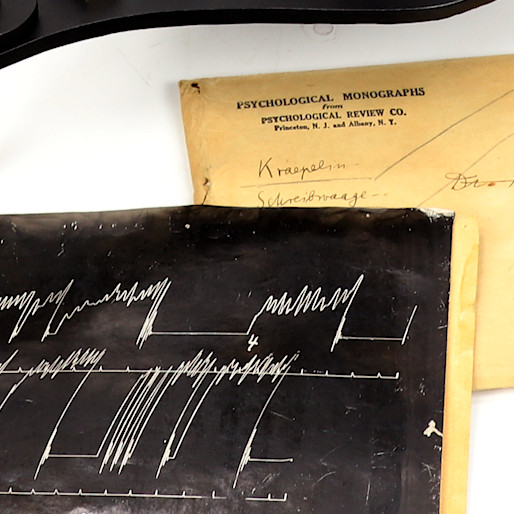 PSYCHOLOGICAL MONOGRAPHS
from
PSYCHOLOGICAL REVIEW CO.
Princeton, N. J. and Albany, N. Y.
Kraepelin
Dr.
Schreibwaage
4